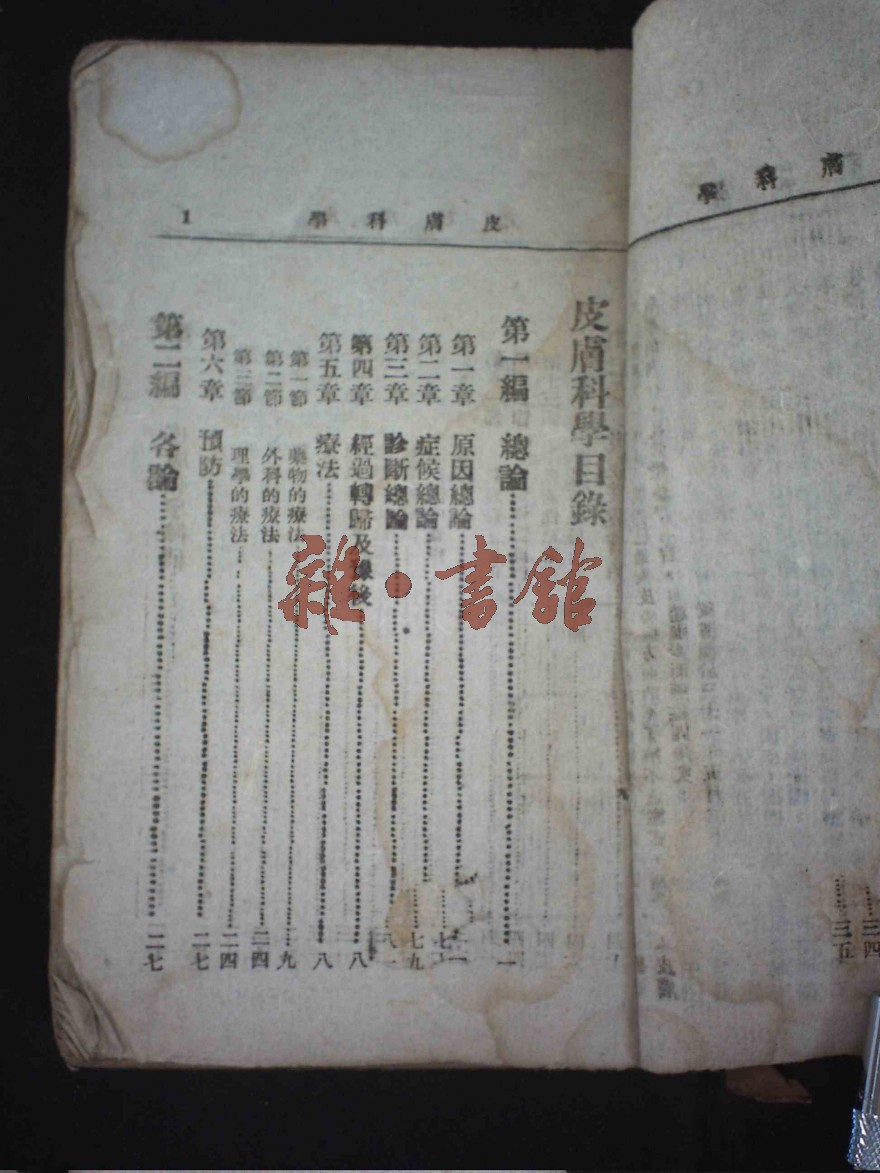 皮膚科學
1
皮膚科學目錄
第一編 總論 一
第一章 原因總論
第二章 症候總論
第三章 診斷總論
第四章 經過轉歸及豫後 八
第五章 療法 八
第一節 藥物的療法 九
第二節 外科的療法 二四
第三節 理學的療法 二四
第六章 預防 二七
第二編 各論 二七
雜·書舘
膚科學
三四
三五